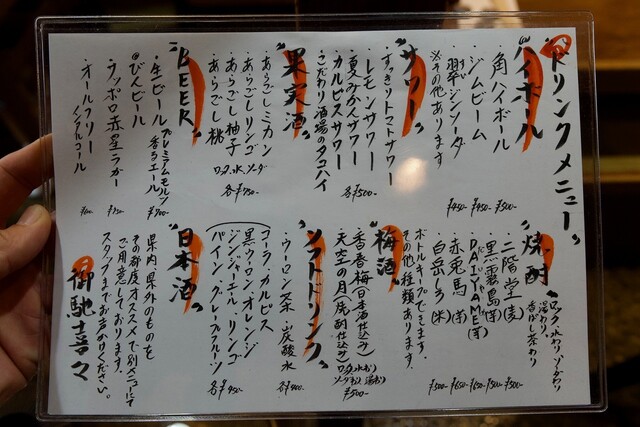 ドリンクメニュー
"ハイボール"
・角ハイボール ¥500-
・ジムビーム ¥450-
・翠ジンソーダ ¥450-
※その他あります
"サワー"
・すっきりトマトサワー
・レモンサワー
・夏みかんサワー
・カルピスサワー
・こだわり酒場のタコハイ
各¥500-
"果実酒"
・あらごしミカン
・あらごしリンゴ
・あらごし柚子
・あらごし桃
ロック、水、ソーダ
各¥750-
"BEER"
・生ビール プレミアムモルツ 香るエール ¥700-
◎びんビール
サッポロ赤星ラガー ¥750-
・オールフリー ノンアルコール
"焼酎"
ロック、水わり、ソーダわり
湯わり、香ばし茶わり
・二階堂(麦) ¥500-
・黒霧島(芋) ¥500-
・DAIYAME(芋) ¥650-
・赤兎馬(芋) ¥650-
・白岳しろ(米) ¥500-
ボトルキープできます。
その他種類あります。
"梅酒"
・香梅(日本酒仕込み)
・天空の月(焼酎仕込み)
¥500-
"ソフトドリンク"
・ウーロン茶・炭酸水 各¥400-
コーラ・カルピス
黒ウーロン・オレンジ
ジンジャーエール・リンゴ
パイン・グレープフルーツ
各¥450-
"日本酒"
県内、県外のものを
その都度オススメで別メニューにて
ご用意しております。
スタッフまでお声がけください。
御馳喜々